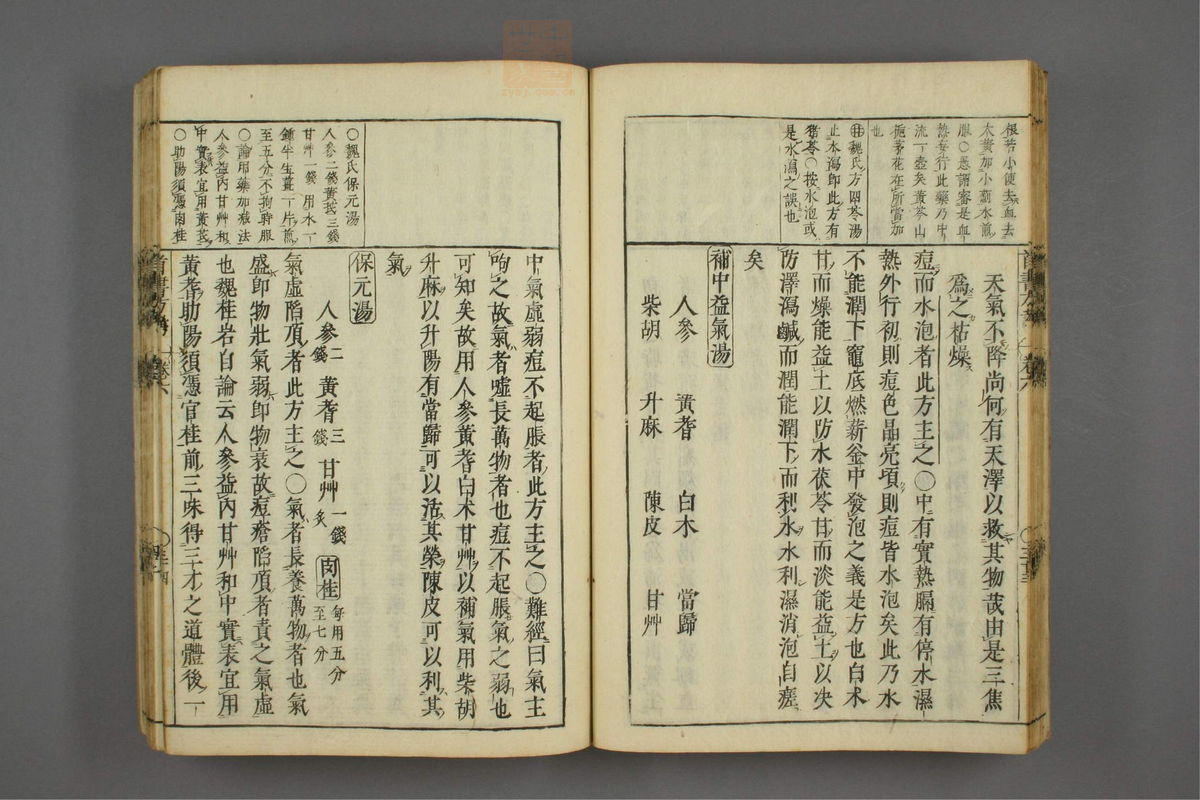 根若小便去血去
大黄加小薊水煎
服○愚謂審是血
熱妄行此藥乃中
流一壺矣黄芩山
梔茅花在所當加
也
魏氏方四苓湯
止本瀉即此方有
猪苓○按水泡或
是水瀉之誤也
天氣不降尚何有天澤以救其物哉由是三焦
爲之枯燥
痘而水泡者此方主之○中有實熱膈有停水濕
熱外行初則痘色晶亮頃則痘皆水泡矣此乃水
不能潤下竈底燃薪釜中發泡之義是方也白术
甘而燥能益土以防水茯苓甘而淡能益土以决
防澤瀉鹹而潤能潤下而利水水利濕消泡自瘥
矣
補中益氣湯
人參 黄耆 白术 當歸
柴胡 升麻 陳皮 甘艸
○魏氏保元湯
人參二錢黄芪三錢
甘艸一錢 用水一
鍾半生薑一片煎
至五分不拘時服
○論用藥加减法
人參益内甘艸和
中實表宜用黄芪
○助陽須憑肉桂
中氣虚弱痘不起脹者此方主之○難經曰氣主
呴之故氣者嘘長萬物者也痘不起脹氣之弱也
可知矣故用人參黄耆白术甘艸以補氣用柴胡
升麻以升陽有當歸可以活其榮陳皮可以利其
氣
保元湯
人參二錢 黄耆三錢 甘艸一錢炙 肉桂每用五分至七分
氣虚陷頂者此方主之○氣者長養萬物者也氣
盛即物壯氣弱即物衰故痘瘡陷頂者責之氣虚
也魏桂岩自論云人參益内甘艸和中實表宜用
黄耆助陽須憑官桂前三味得三才之道體後一